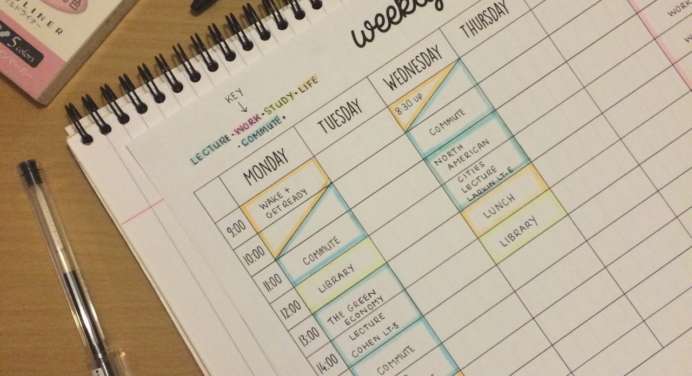 LINER
5 colors
weekly
KEY
↓
LECTURE · WORK · STUDY · LIFE
· COMMUTE ·
MONDAY
TUESDAY
WEDNESDAY
THURSDAY
9:00
10:00
11:00
12:00
13:00
14:00
WAKE +
GET READY
COMMUTE
LIBRARY
THE GREEN
ECONOMY
LECTURE
COHEN LT-B
COMMUTE
8:30 UP
COMMUTE
NORTH
AMERICAN
CITIES
LECTURE
LARKIN LT-E
LUNCH
LIBRARY
WORK